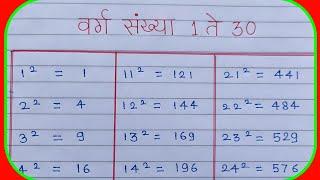 वर्ग संख्या 1 ते 30
1² = 1 11² = 121 21² = 441
2² = 4 12² = 144 22² = 484
3² = 9 13² = 169 23² = 529
4² = 16 14² = 196 24² = 576